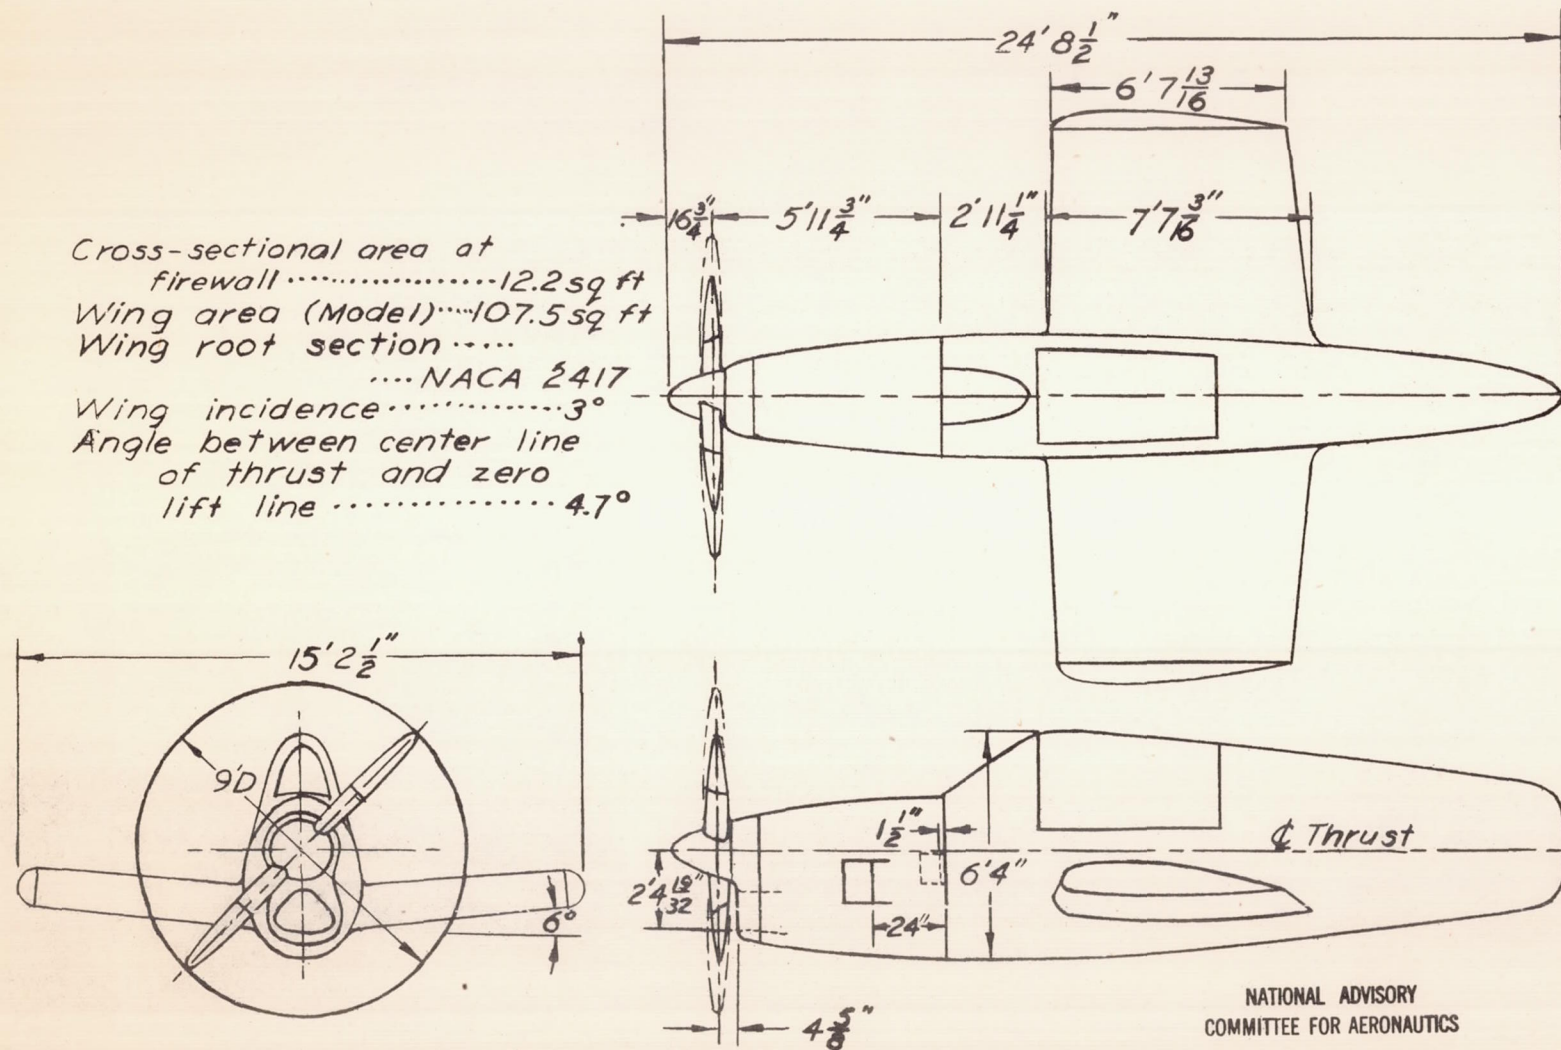 24' 8 1/2"
6' 7 13/16
16 3/4" 5' 11 3/4" 2' 11 1/4" 7' 7 3/16"
Cross-sectional area at
firewall ................... 12.2 sq ft
Wing area (Model) ..... 107.5 sq ft
Wing root section .....
.... NACA 2417
Wing incidence .............. 3°
Angle between center line
of thrust and zero
lift line ................ 4.7°
15' 2 1/2"
9'D
6°
1 1/2"
℄ Thrust
6' 4"
2' 4 19/32"
24"
4 5/8"
NATIONAL ADVISORY
COMMITTEE FOR AERONAUTICS